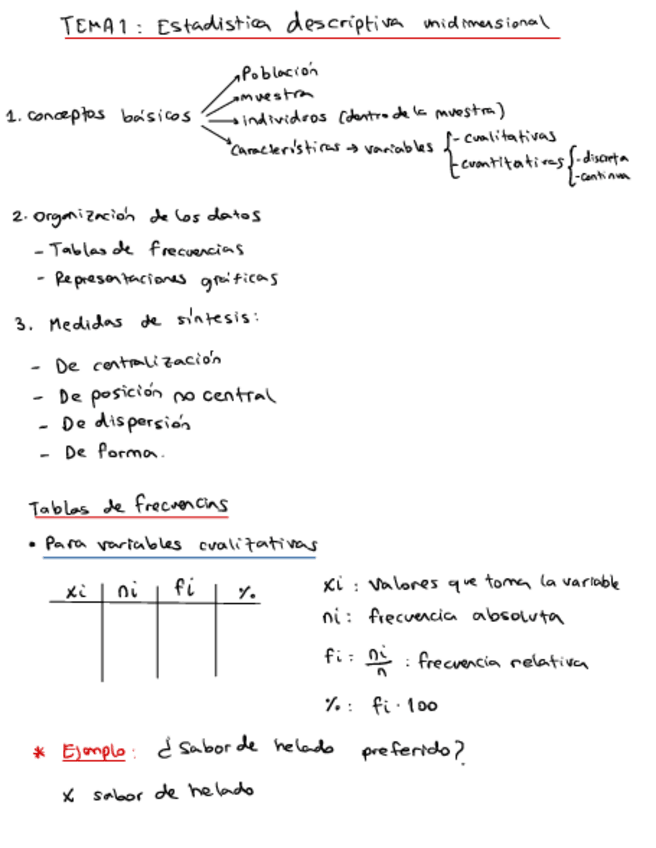 TEMA 1: Estadística descriptiva unidimensional
Población
muestra
1. conceptos básicos
individuos (dentro de la muestra)
Características → variables
- cualitativas
- cuantitativas
- discreta
- continua
2. Organización de los datos
- Tablas de frecuencias
- Representaciones gráficas
3. Medidas de síntesis:
- De centralización
- De posición no central
- De dispersión
- De forma.
Tablas de frecuencias
• Para variables cualitativas
xi | ni | fi | %.
xi: Valores que toma la variable
ni: frecuencia absoluta
fi: ni/n : frecuencia relativa
%.: fi · 100
* Ejemplo: ¿Sabor de helado preferido?
x sabor de helado